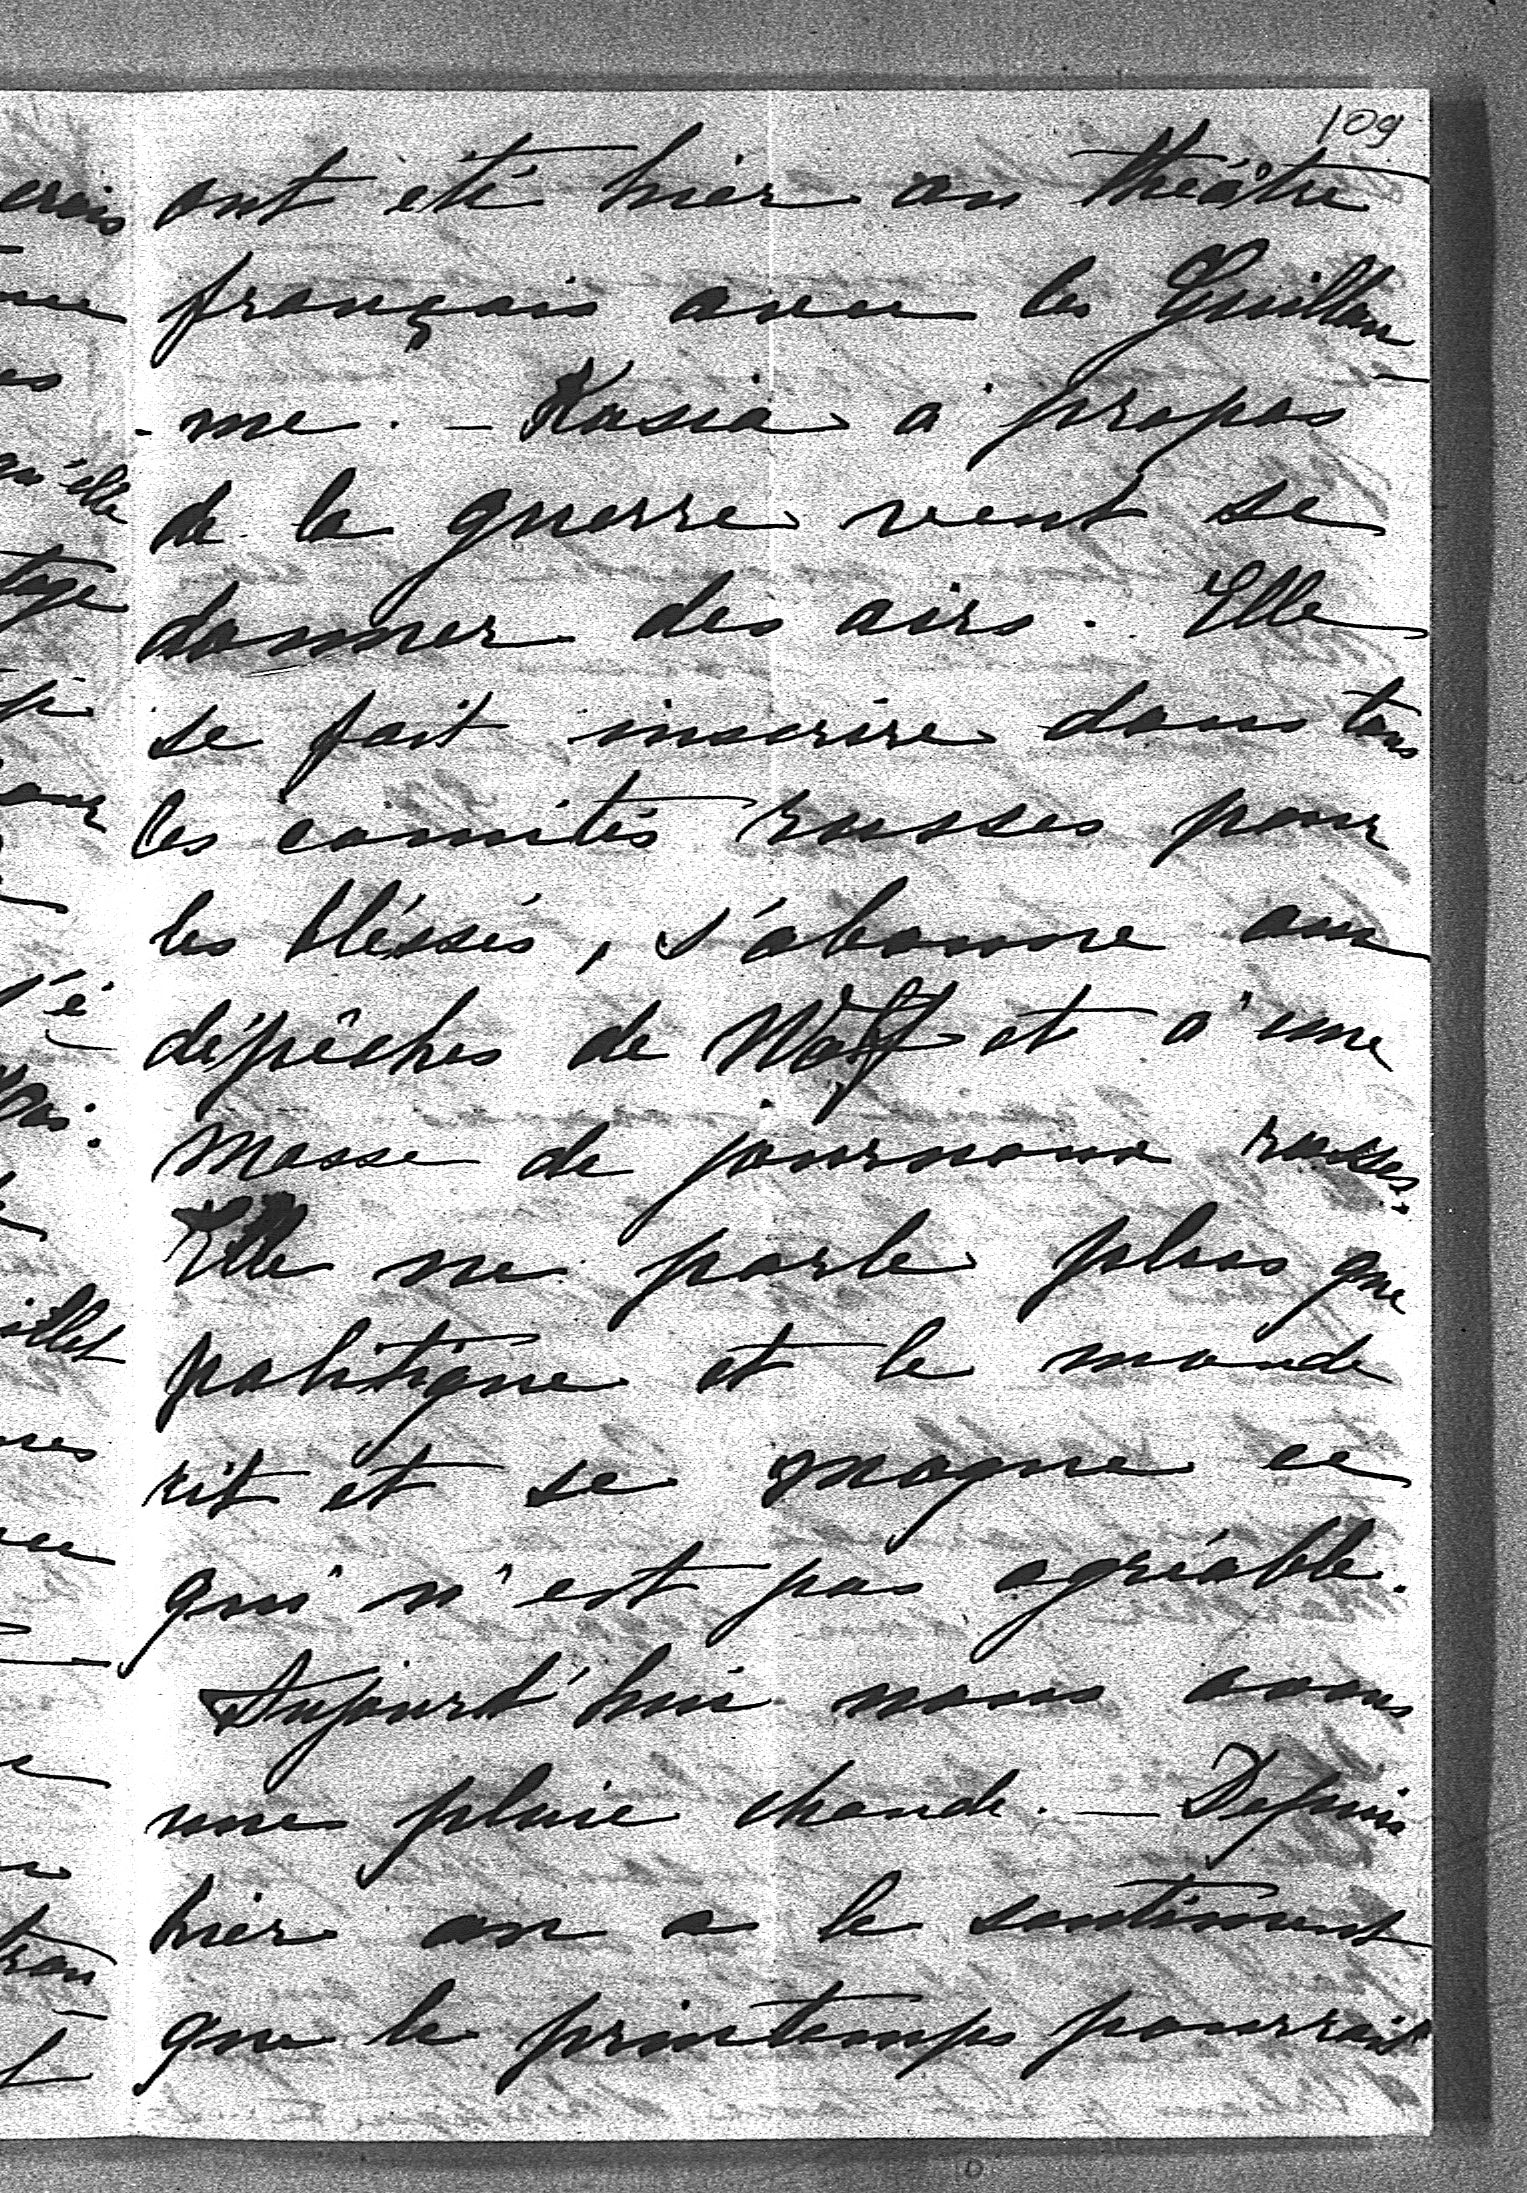 109
ont été hier au théâtre
français avec les Guillau
-me. - Kasia à propos
de la guerre veut se
donner des airs. Elle
se fait inscrire dans tous
les comités russes pour
les bléssés, s'abonne aux
dépêches de Wolff et à une
masse de journaux russes.
Elle ne parle plus que
politique et le monde
rit et se moque ce
qui n'est pas agréable.
Aujourd'hui nous avons
une pluie chaude. - Depuis
hier on a le sentiment
que le printemps pourrait